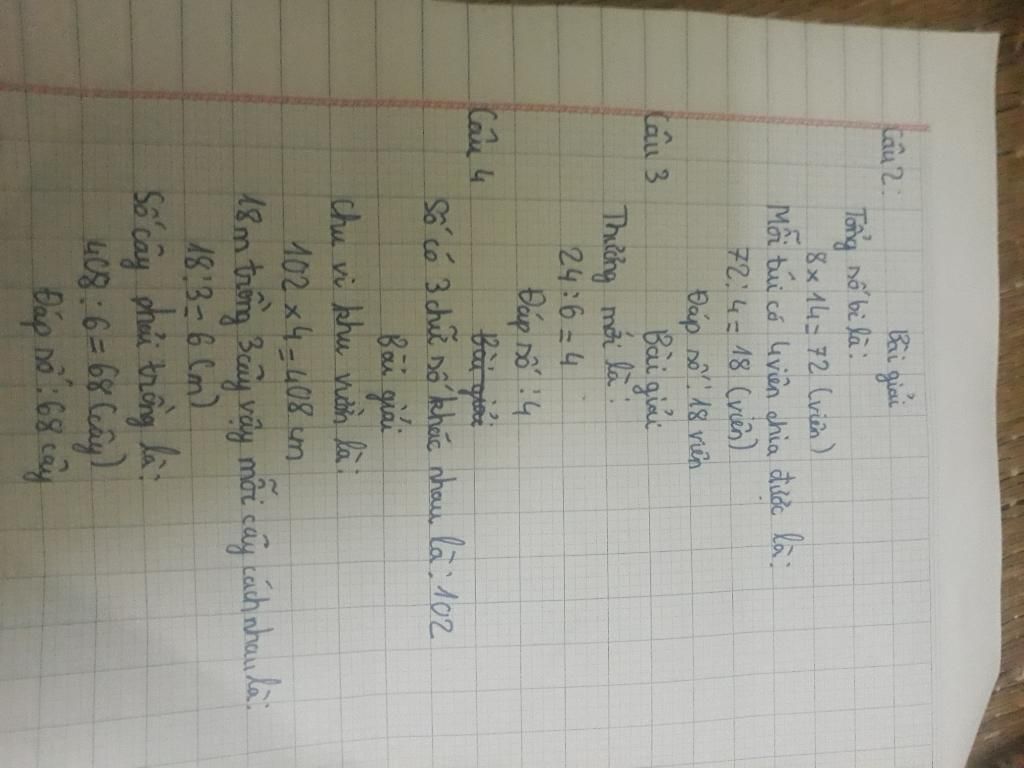 Câu 2: Bài giải
Tổng số bi là:
8 x 14 = 72 (viên)
Mỗi túi có 4 viên chia được là:
72 : 4 = 18 (viên)
Đáp số: 18 viên
Câu 3 Bài giải
Thương mới là:
24 : 6 = 4
Đáp số: 4
Câu 4 Bài giải
Số có 3 chữ số khác nhau là: 102
Bài giải
Chu vi khu vườn là:
102 x 4 = 408 cm
18m trồng 3 cây vậy mỗi cây cách nhau là:
18 : 3 = 6 (m)
Số cây phải trồng là:
408 : 6 = 68 (cây)
Đáp số: 68 cây